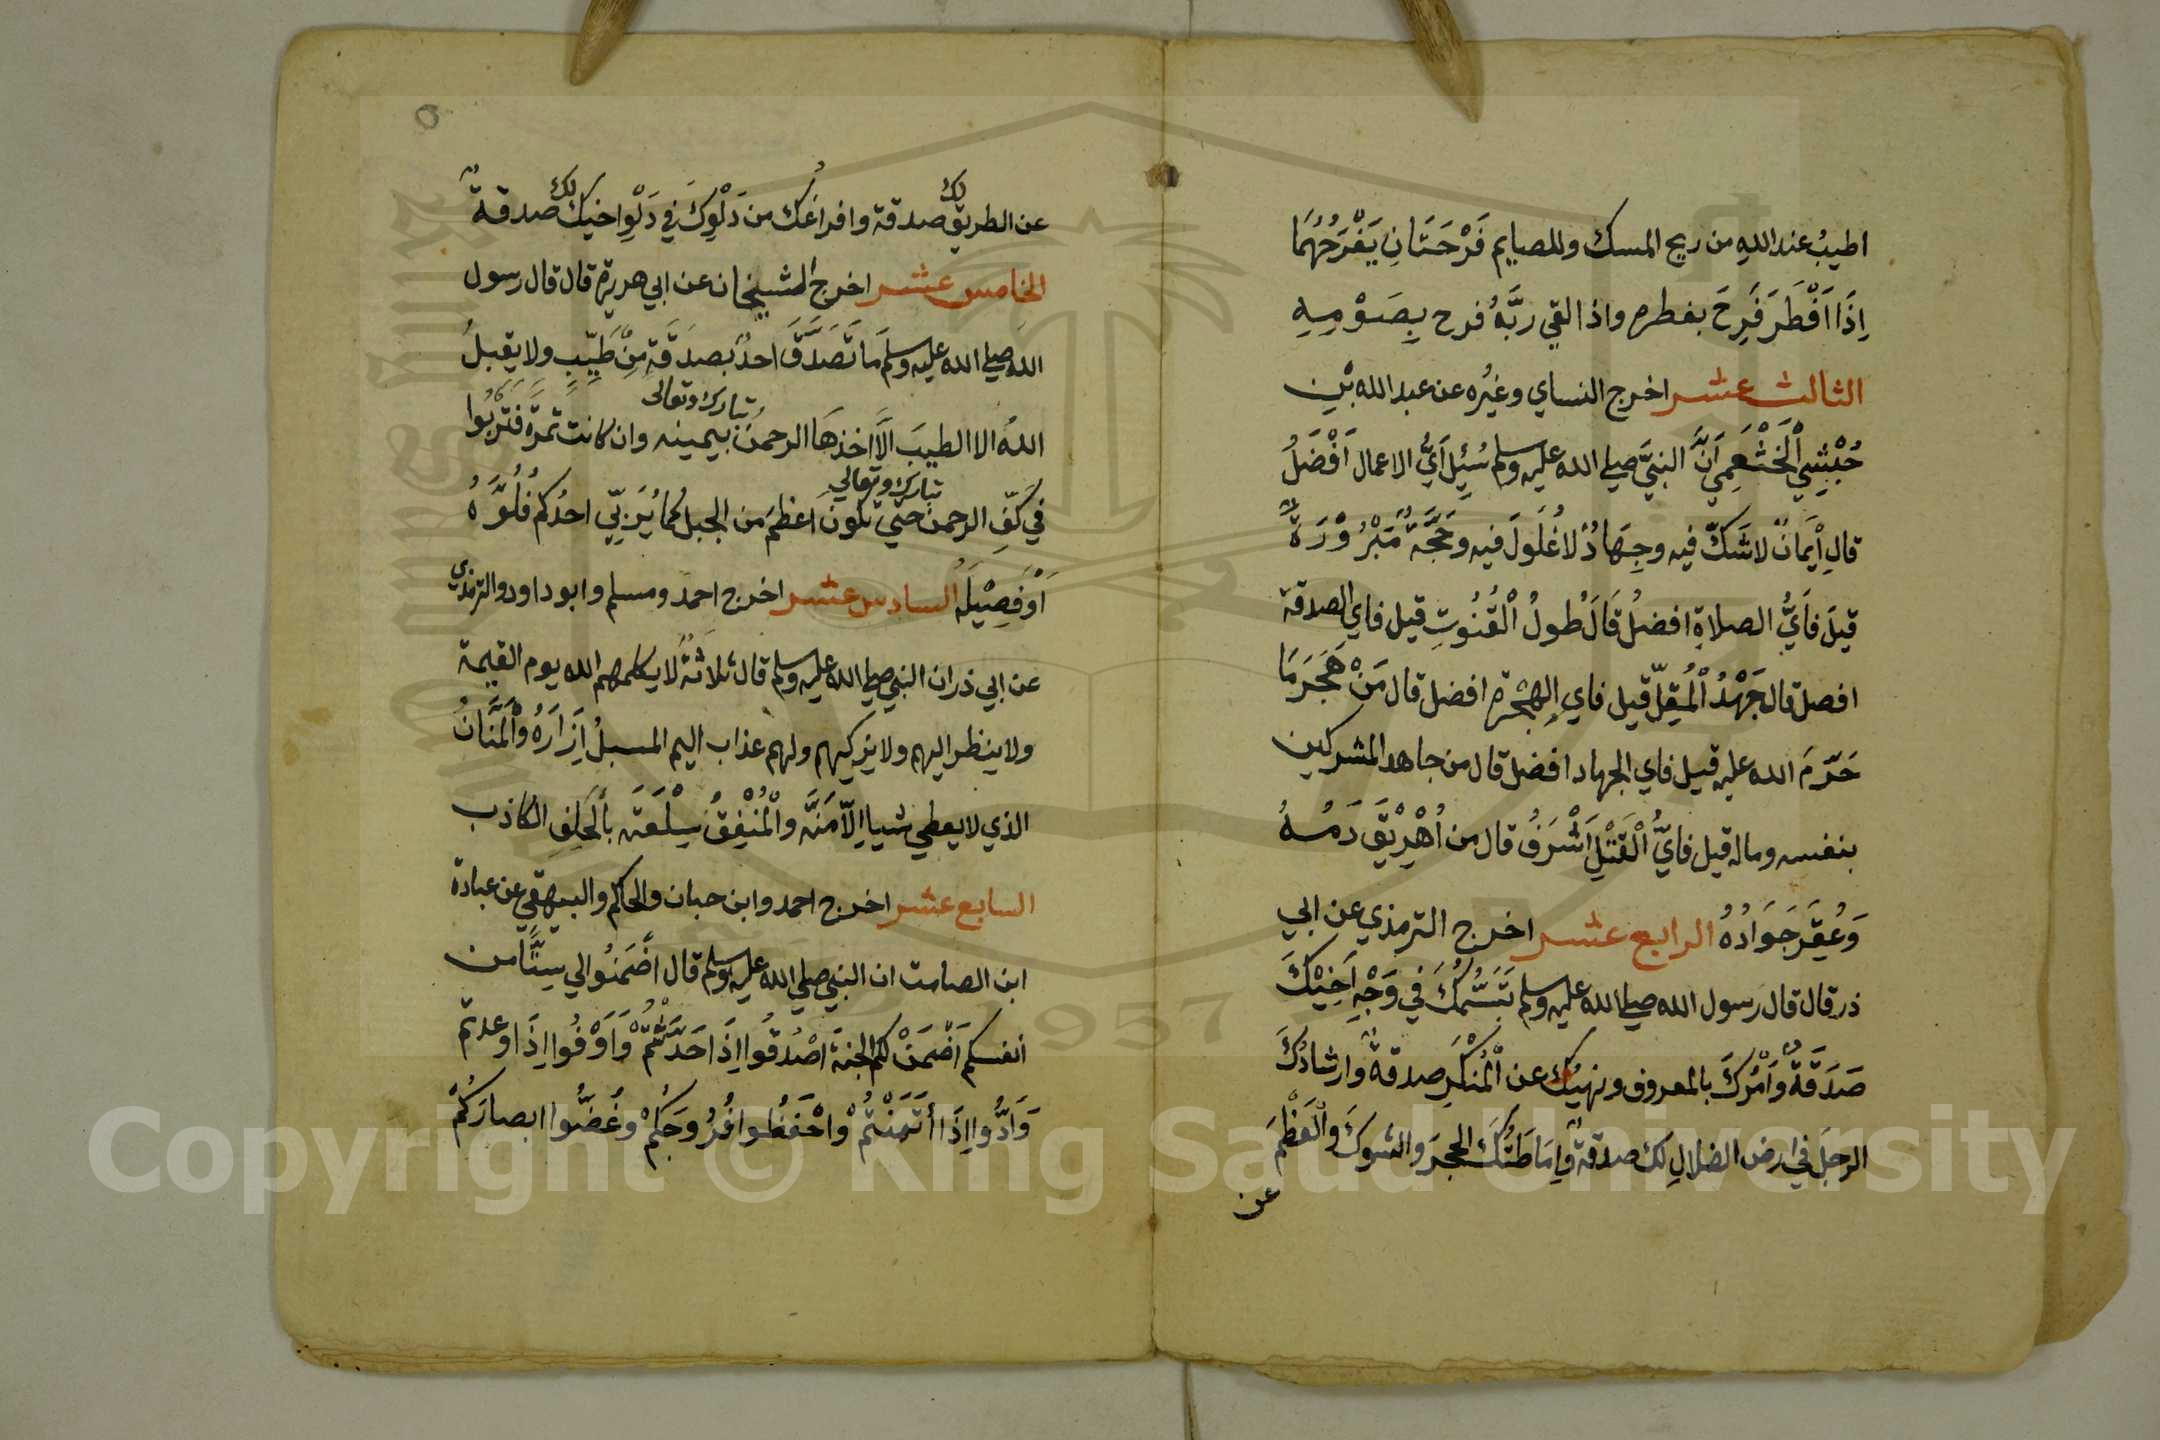 اطيبُ عند اللهِ من ريح المسك وللصايم فَرْحَتَانِ يَفْرَحُهُمَا
اِذَا اَفْطَرَ فَرِحَ بفطره واذا لقي ربَّهُ فرح بِصَوْمِهِ
الثالث عشر اخرج النساي وغيرُه عن عبد الله بْنِ
حُبْشِيِ اْلخَثْعَمِي اَنَّ النبيَّ صلى الله عليه وسلم سُئِلَ اَيُّ الاعمال اَفْضَلُ
قال اِْيمَانٌ لاشَكَّ فيه وجِهَادٌ لاغُلُولَ فيه وحَجَّةٌ مَبْرُوْرَةٌ
قيلَ فَاَيُّ الصلاةِ افضلُ قَالَ طولُ اْلقُنُوتِ قيل فاي الصدقة
افصل قال جَهْدُ اْلمُقِلِّ قيل فاي الهِجْرَة افضل قال مَنْ هَجَرَ مَا
حَرَّمَ الله عليه قيل فاي الجهاد افضل قال من جاهد المشركين
بنفسه وماله قيل فايُّ اْلقَتْلِ اَشْرَفُ قال من اُهْرِيْقَ دَمُهُ
وَعُقِرَ جَوَادُهُ الرابع عشر اخرج الترمذي عن ابي
ذر قال قال رَسول الله صلى الله عليه وسلم تَبَسُّمُكَ فِي وَجْهِ اَخِيْكَ
صَدَقَةٌ وَاَمْرُكَ بالمعروف ونهيُكَ عن اْلمُنْكَرِ صدقةٌ وارشادُكَ
الرجلَ في ارض الضلالِ لك صدقةٌ وَاِمَاطَتُكَ الحجرَ والشوكَ واْلعَظْمَ
عن
عن الطريق لك صدقة وافراغُك من دَلْوِكَ في دَلْوِ اخيك لك صدقةٌ
الخامس عشر اخرج الشيخان عن ابي هريرة قال قال رسول
الله صلى الله عليه وسلم مَا تَصَدَّقَ احدٌ بصدَقَةٍ مِنْ طَيِّبٍ ولا يقبلُ
اللهُ الا الطيبَ الَّا اخذهَا الرحمنُ تبارك وتعالى بيمينه وان كانت تمرَةً فتَرْبُوا
فِي كَفِّ الرحمن تبارك وتعالى حتي تكونَ اعظمَ من الجبل كما يُرَبِّي احدُكُم فَلُوَّهُ
اَوْفَصِيْلَهُ السادس عشر اخرج احمد ومسلم وابو داود والترمذي
عن ابي ذر ان النبي صلى الله عليه وسلم قال ثلاثةٌ لا يكلمهم الله يوم القيمة
ولا ينظر اليهم ولا يزكيهم ولهم عذاب اليم المسبلُ اِزَارَهُ واْلمَنَّانُ
الذي لا يعطي شيا اِلَّا مَنَّه واْلمُنْفِقُ سِلْعَتَه باْلحَلِفِ الكاذب
السابع عشر اخرج احمد وابن حبان والحاكم والبيهقي عن عبادة
ابن الصامت ان النبي صلى الله عليه وسلم قال اَضْمَنُوا لي سِتًّا من
انفسكم اَضْمَنْ لكم الجنةَ اصْدُقُوا اِذَا حَدَّثْتُمْ وَاَوْفُوا اِذَا وعدتم
وَاَدُّوا اِذَا أتمِنْتُمْ واحْفَظُوا فُرُوجَكُمْ وغُضُّوا ابصارَكُمْ
Copyright © King Saud University
1957